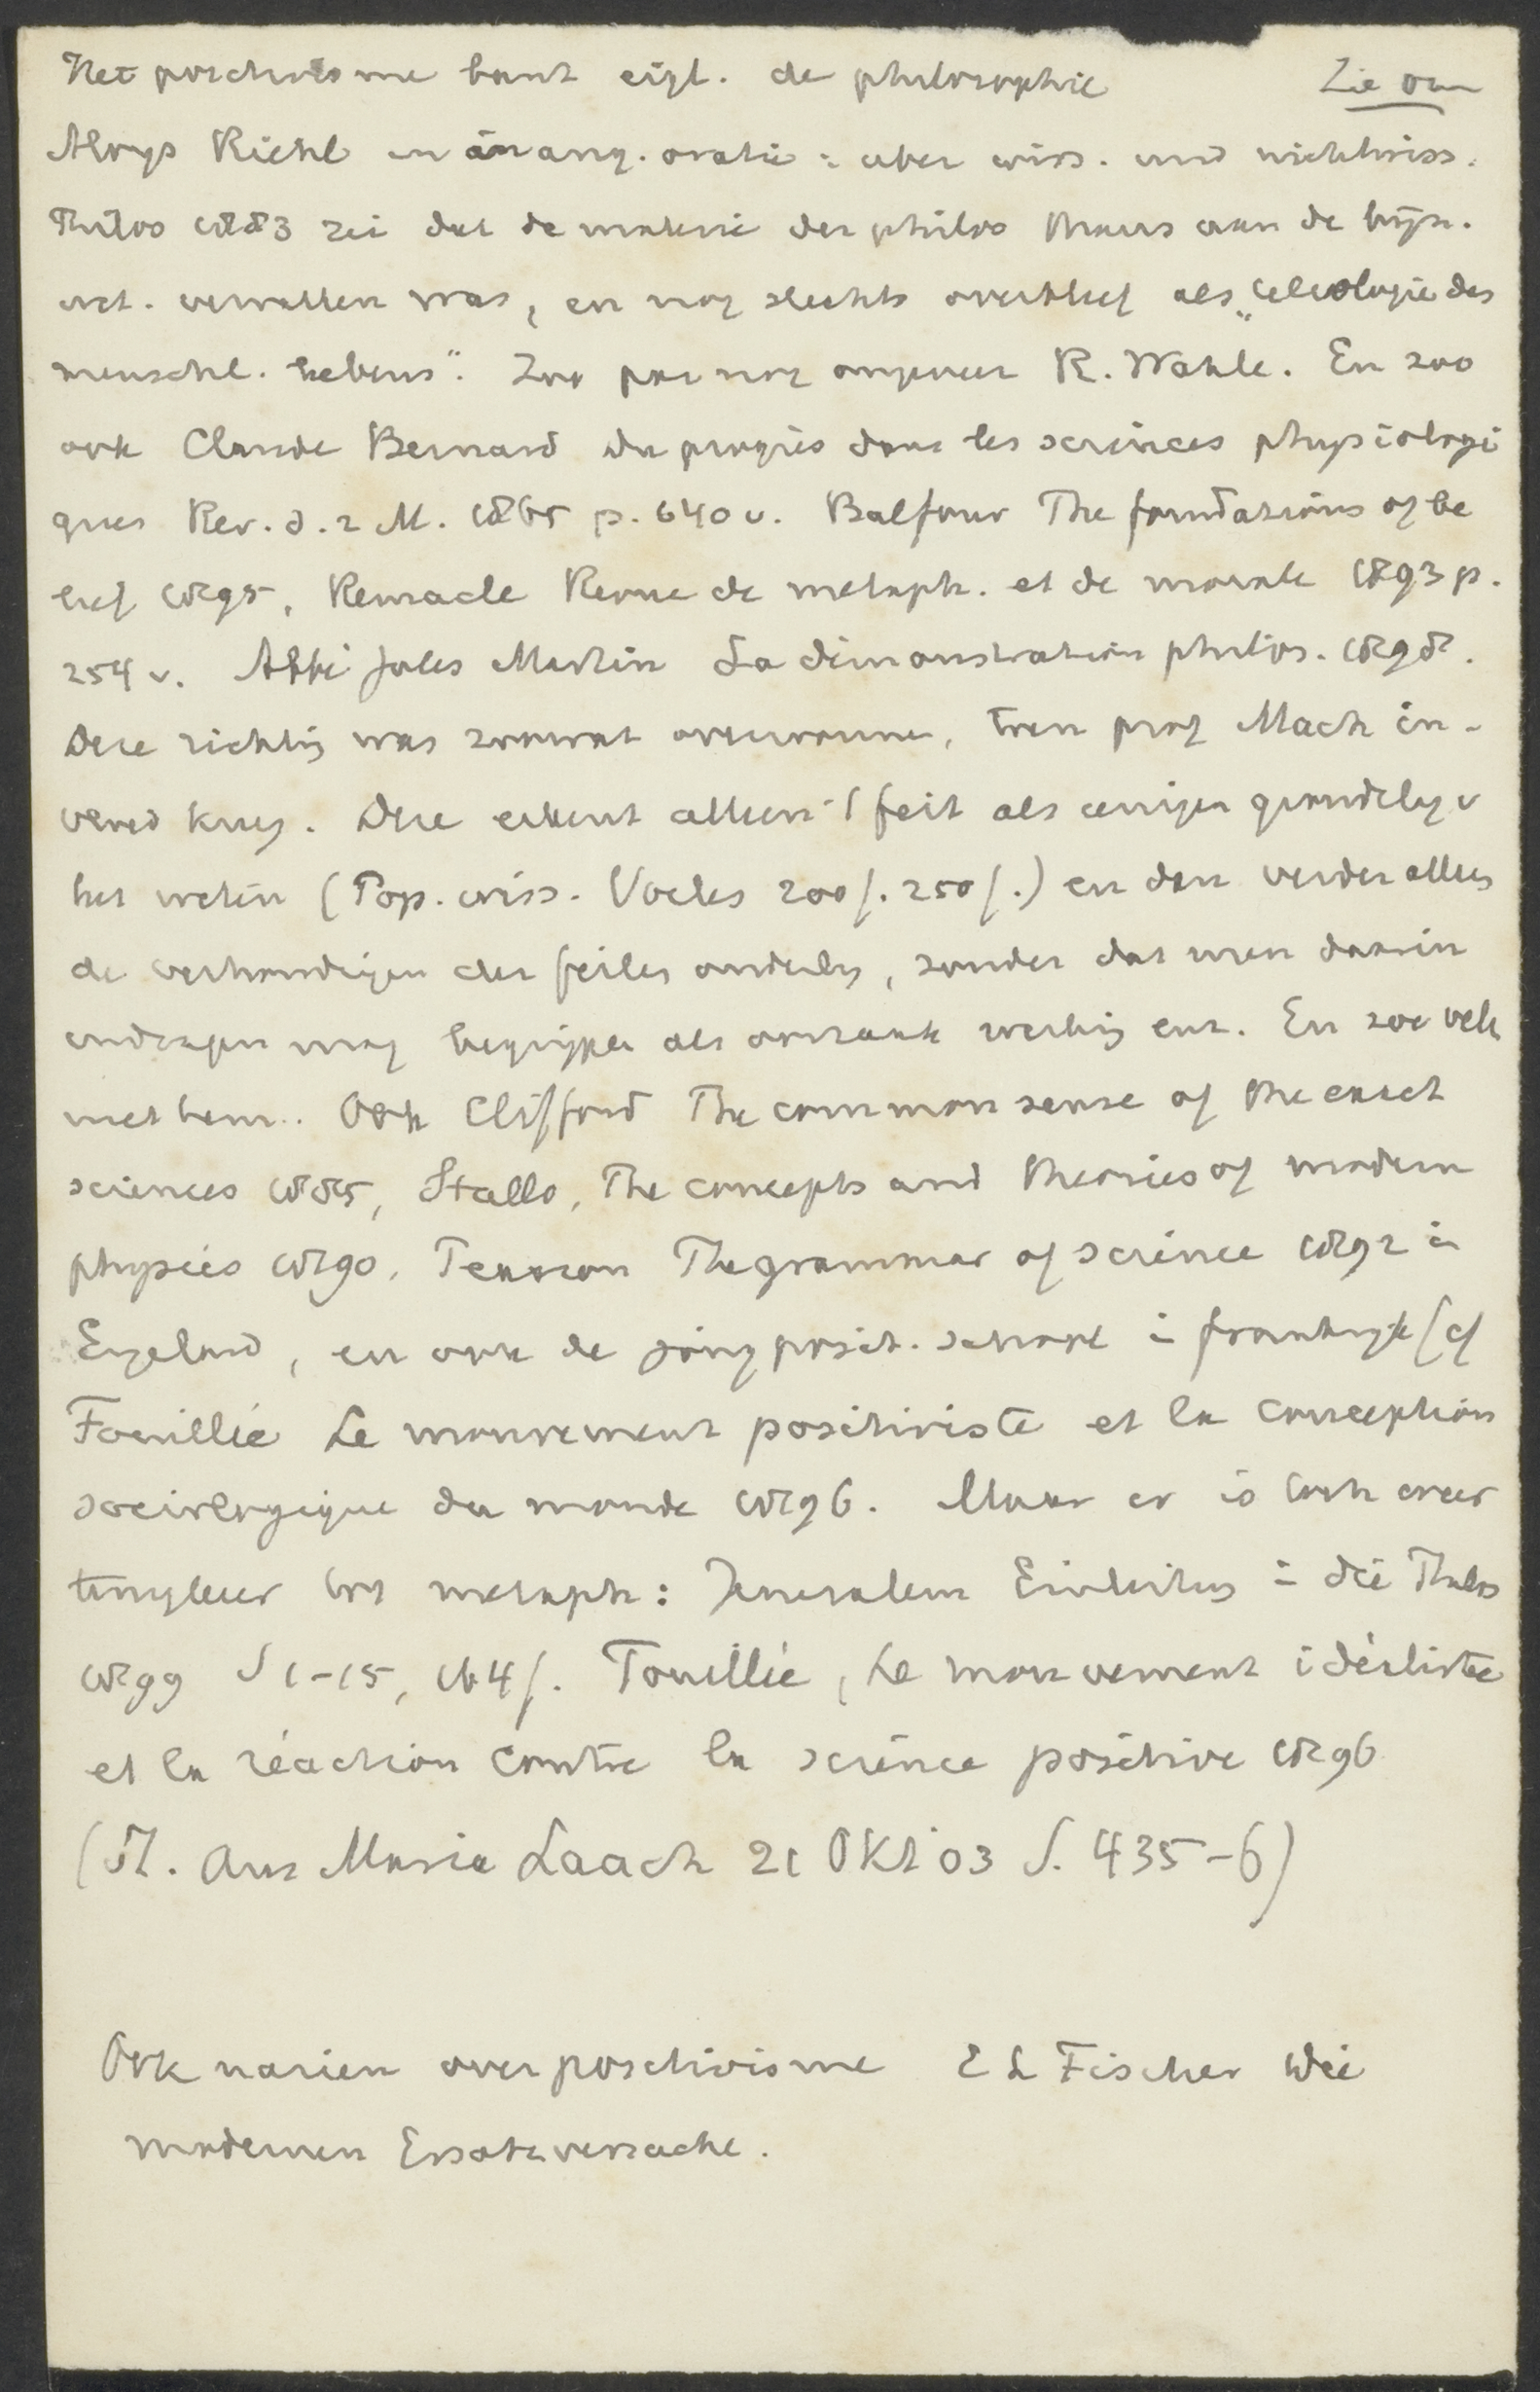 Het positivisme bant eigl. de philosophie Zie om
Aloys Riehl in inaug. oratie: uber wiss. und nichtwiss.
Philos 1883 zei dat de materie der philos thans aan de bijz.
wet. vervallen was, en nog slechts overbleef als „teleologie des
menschl. Lebens". Zoo par nog ongeveer R. Wahle. En zoo
ook Claude Bernard du progrès dans les sciences physiologi
ques Rev. d. 2 M. 1865 p. 640 v. Balfour The foundations of be
lief 1895, Remacle Revue de metaph. et de morale 1893 p.
254 v. Abbé Jules Martin La démonstration philos. 1898.
Deze richting was zoowat overwonnen, toen prof Mach in-
vloed kreeg. Deze erkent alleen 't feit als eenigen grondslag v
het weten (Pop. wiss. Vorles 200f. 250f.) en dan verder alleen
de verhoudingen der feiten onderling, zonder dat men daarin
indringen mag begrippen als oorzaak werking enz. En zoo vele
met hem. Ook Clifford The common sense of the exact
sciences 1885, Stallo, The concepts and theories of modern
physics 1890, Pearson The grammar of science 1892 in
Engeland, en ook de jong posit. school in frankrijk (cf
Fouillée Le mouvement positiviste et la conception
sociologique du monde 1896. Maar er is toch weer
terugkeer tot metaph: Jerusalem Einleitung in die Philos
1899 S 1-15, 164f. Fouillée, Le mouvement idéaliste
et la réaction contre la science positive 1896
(St. aus Maria Laach 21 Okt 03 S. 435-6)
Ook nazien over positivisme E L Fischer Die
modernen Ersatzversuche.